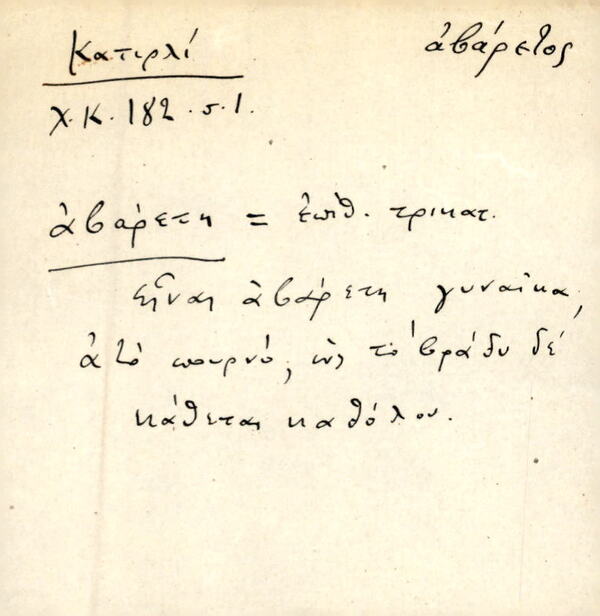 Κατιρλί
ἀβάρετος
Χ.Κ. 182.σ.1.
ἀβάρετη = ἐπίθ. τρικατ.
εἶναι ἀβάρετη γυναῖκα,
ἀπό πουρνό, ὡς τό βράδυ δέ
κάθεται καθόλου.